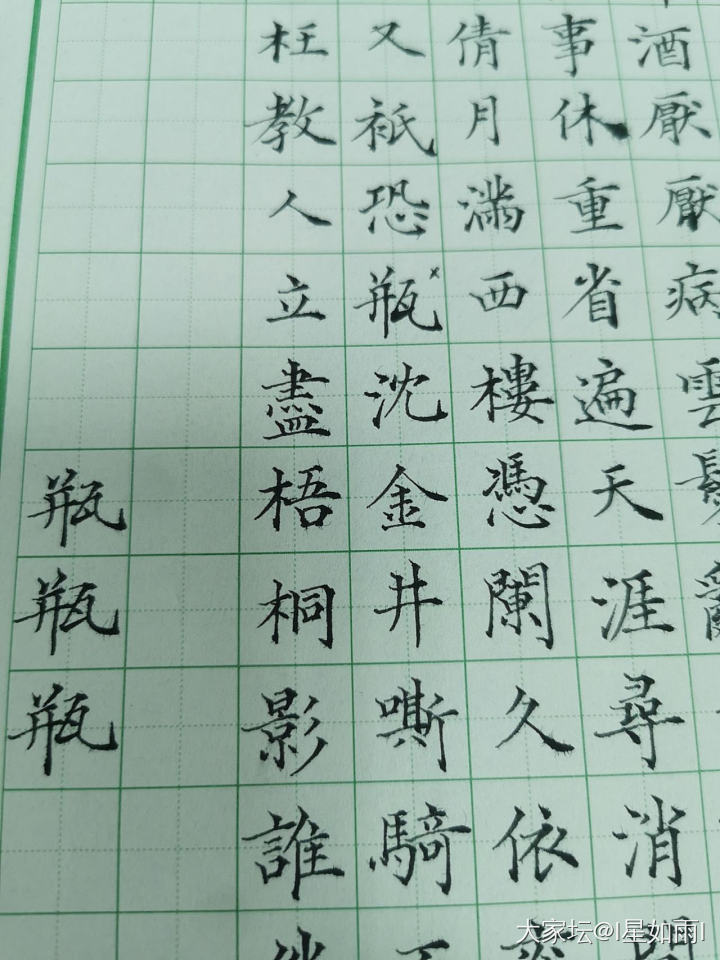 酒厭厭病雲
事休重省遍天涯尋消
倩月滿西樓憑闌久依
又祇恐瓶沈金井嘶騎
枉教人立盡梧桐影誰
瓶瓶瓶
大家坛@I星如雨I